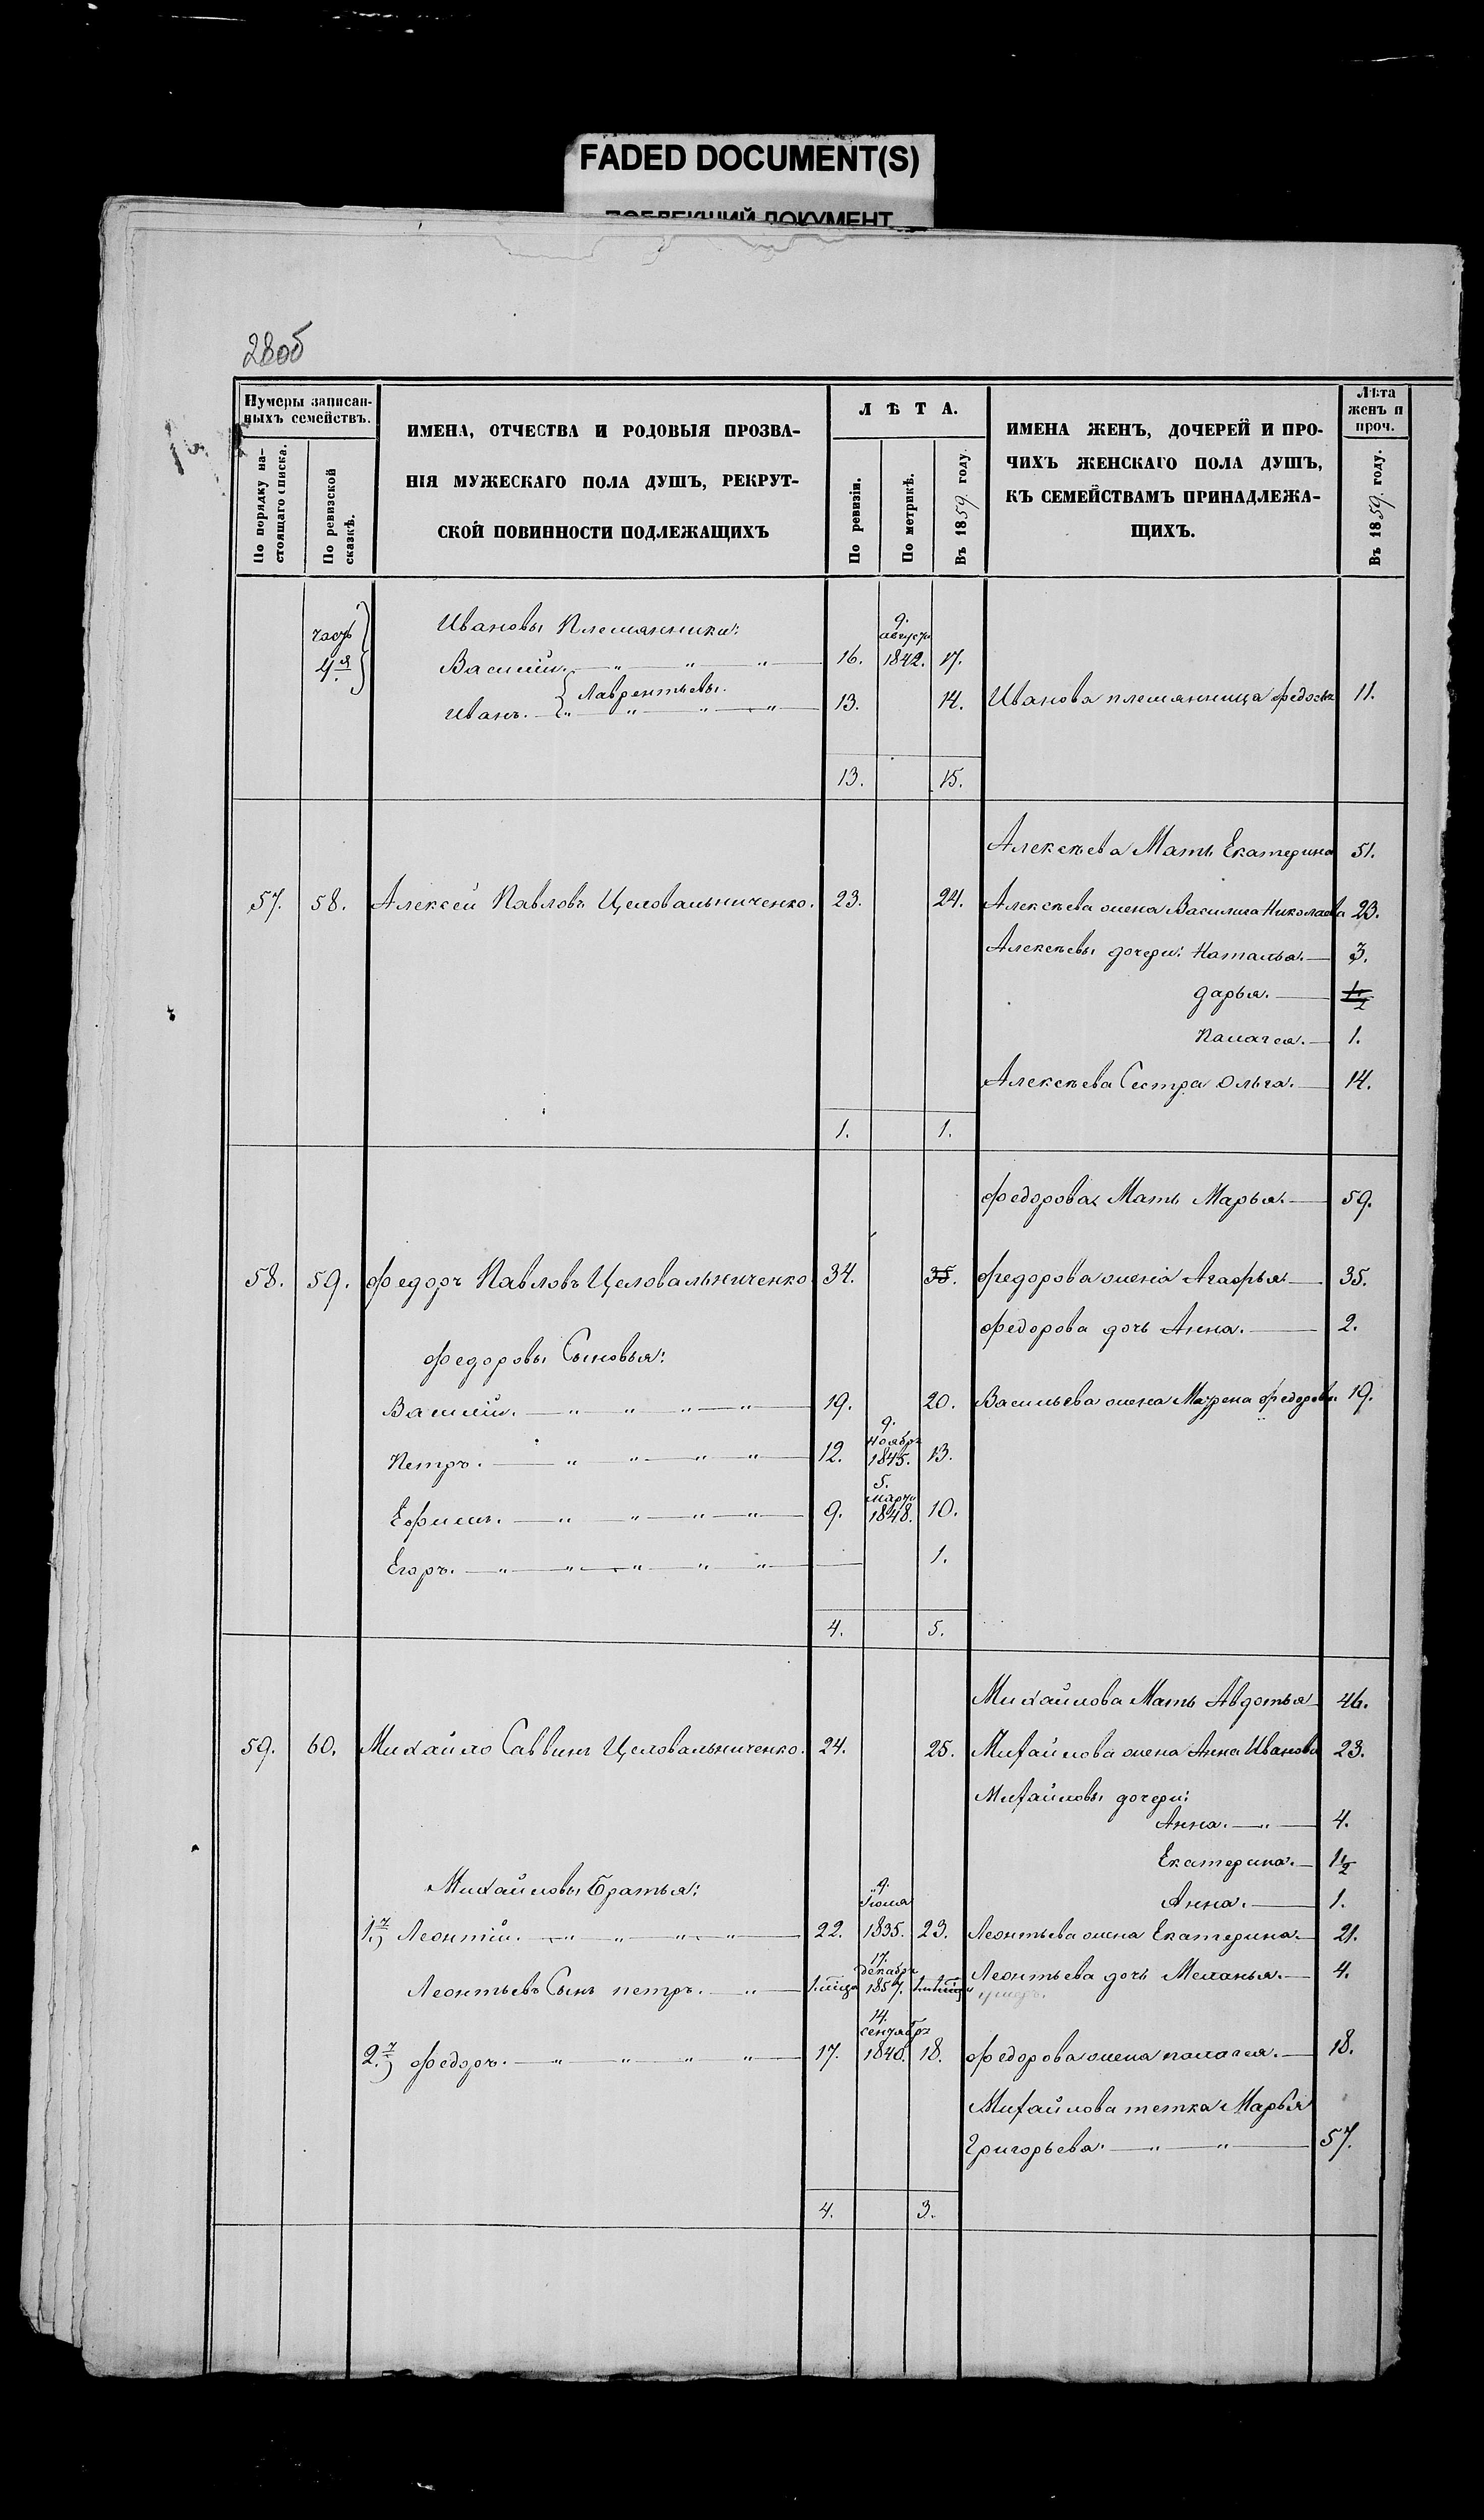 FADED DOCUMENT(S)
ПОБЛЕКШИЙ ДОКУМЕНТ
28об
Нумеры записан-
ныхъ семействъ.
По порядку на-
стоящаго списка.
По ревизской
сказкѣ.
ИМЕНА, ОТЧЕСТВА И РОДОВЫЯ ПРОЗВА-
НІЯ МУЖЕСКАГО ПОЛА ДУШЪ, РЕКРУТ-
СКОЙ ПОВИННОСТИ ПОДЛЕЖАЩИХЪ
ЛѢТА.
По ревизіи.
По метрикѣ.
Въ 1859 году.
ИМЕНА ЖЕНЪ, ДОЧЕРЕЙ И ПРО-
ЧИХЪ ЖЕНСКАГО ПОЛА ДУШЪ,
КЪ СЕМЕЙСТВАМЪ ПРИНАДЛЕЖА-
ЩИХЪ.
Лѣта
женъ и
проч.
Въ 1859 году.
часть
4я
Ивановы Племянники:
Василій. 16. 9. августа 1842. 17.
Лаврентьевы.
Иванъ. 13. 14. Иванова племянница Федосья 11.
13. 15.
Алексѣева Мать Екатерина 51.
57. 58. Алексей Павловъ Целовальниченко. 23. 24. Алексѣева жена Василиса Николаева 23.
Алексѣевы дочери: Наталья. 3.
Дарья. 1/2
Палагея. 1.
Алексѣева Сестра Ольга. 14.
1. 1.
Федорова Мать Марья. 59.
58. 59. Федоръ Павловъ Целовальниченко 34. 35. Федорова жена Агафья 35.
Федорова дочь Анна. 2.
Федоровы Сыновья:
Василій. 19. 20. Васильева жена Мазрена Федорова. 19.
Петръ. 12. 9. ноября 1845. 13.
Ефимъ. 9. 5. марта 1848. 10.
Егоръ. 1.
4. 5.
Михайлова Мать Авдотья 46.
59. 60. Михайло Саввинъ Целовальниченко. 24. 25. Михайлова жена Анна Иванова 23.
Михайловы дочери:
Анна. 4.
Екатерина. 1 1/2
Михайловы Братья:
Анна. 1.
1.й Леонтій. 22. 9. Іюня 1835. 23. Леонтьева жена Екатерина 21.
Леонтьевъ Сынъ Петръ. 17. декабря 1857. Леонтьева дочь Меланья. 4.
умеръ.
2.й Федоръ. 17. 14. сентября 1840. 18. Федорова жена Палагея. 18.
Михайлова тетка Марья
Григорьева. 57.
4. 3.